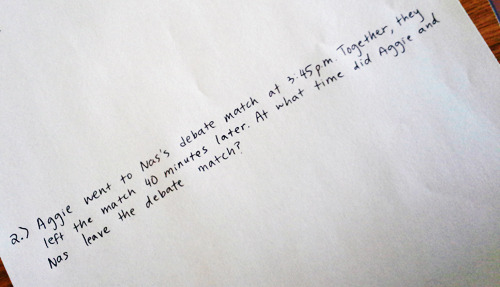 2.) Aggie went to Nas's debate match at 3:45 p.m. Together, they
left the match 40 minutes later. At what time did Aggie and
Nas leave the debate match?